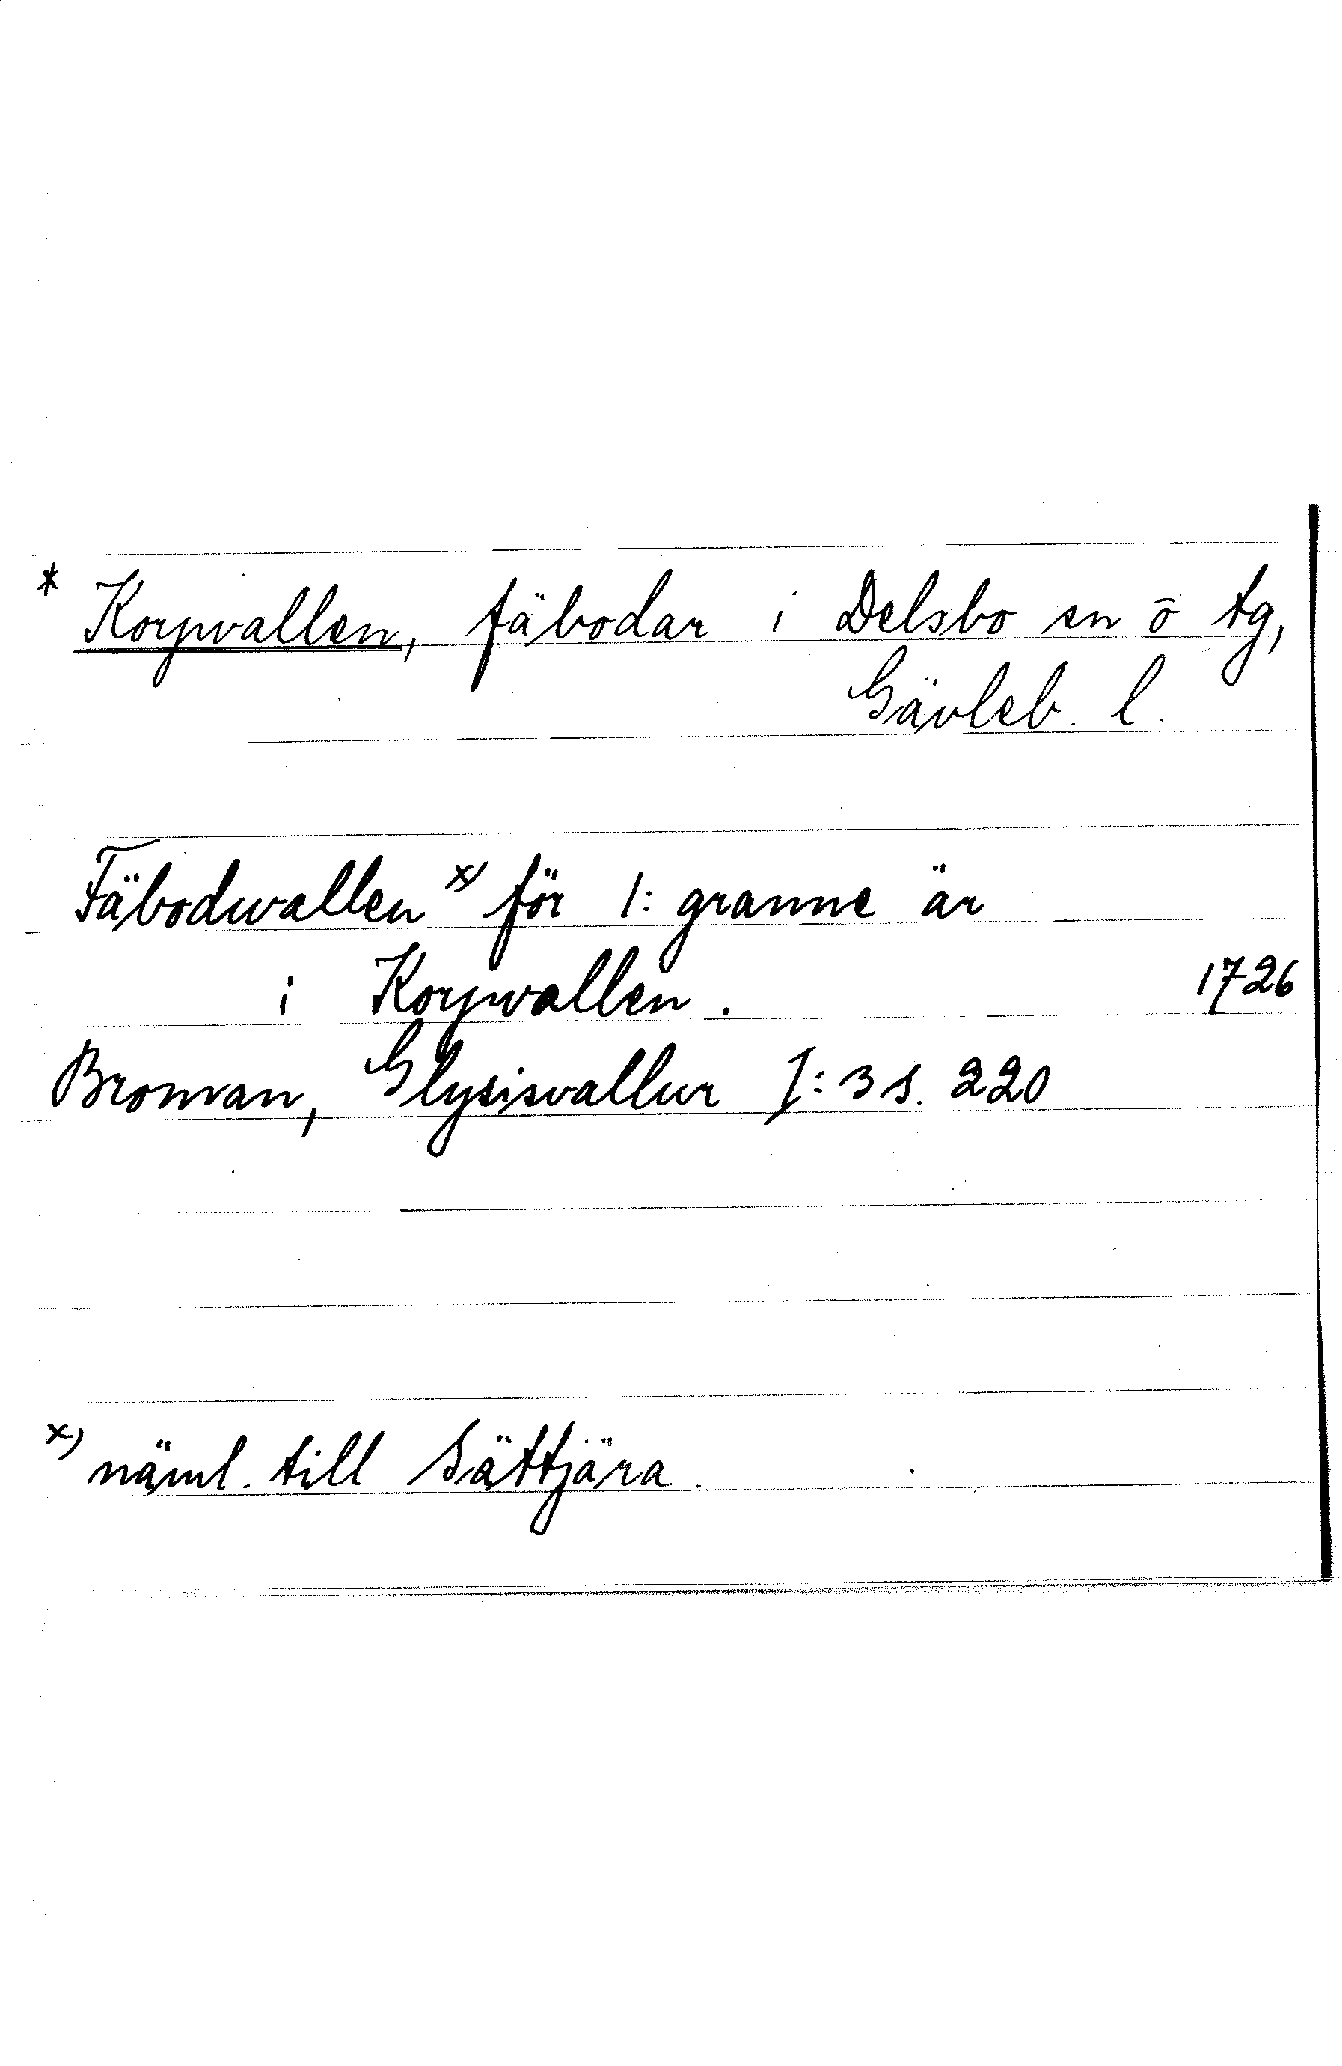 * Korpvallen, fäbodar i Delsbo sn ö tg,
Gävleb. l.
Fäbodwallen x) för 1: granne är
i Korpwallen. 1726
Broman, Glysisvallur I: 3 s. 220
x) näml. till Sättjära.